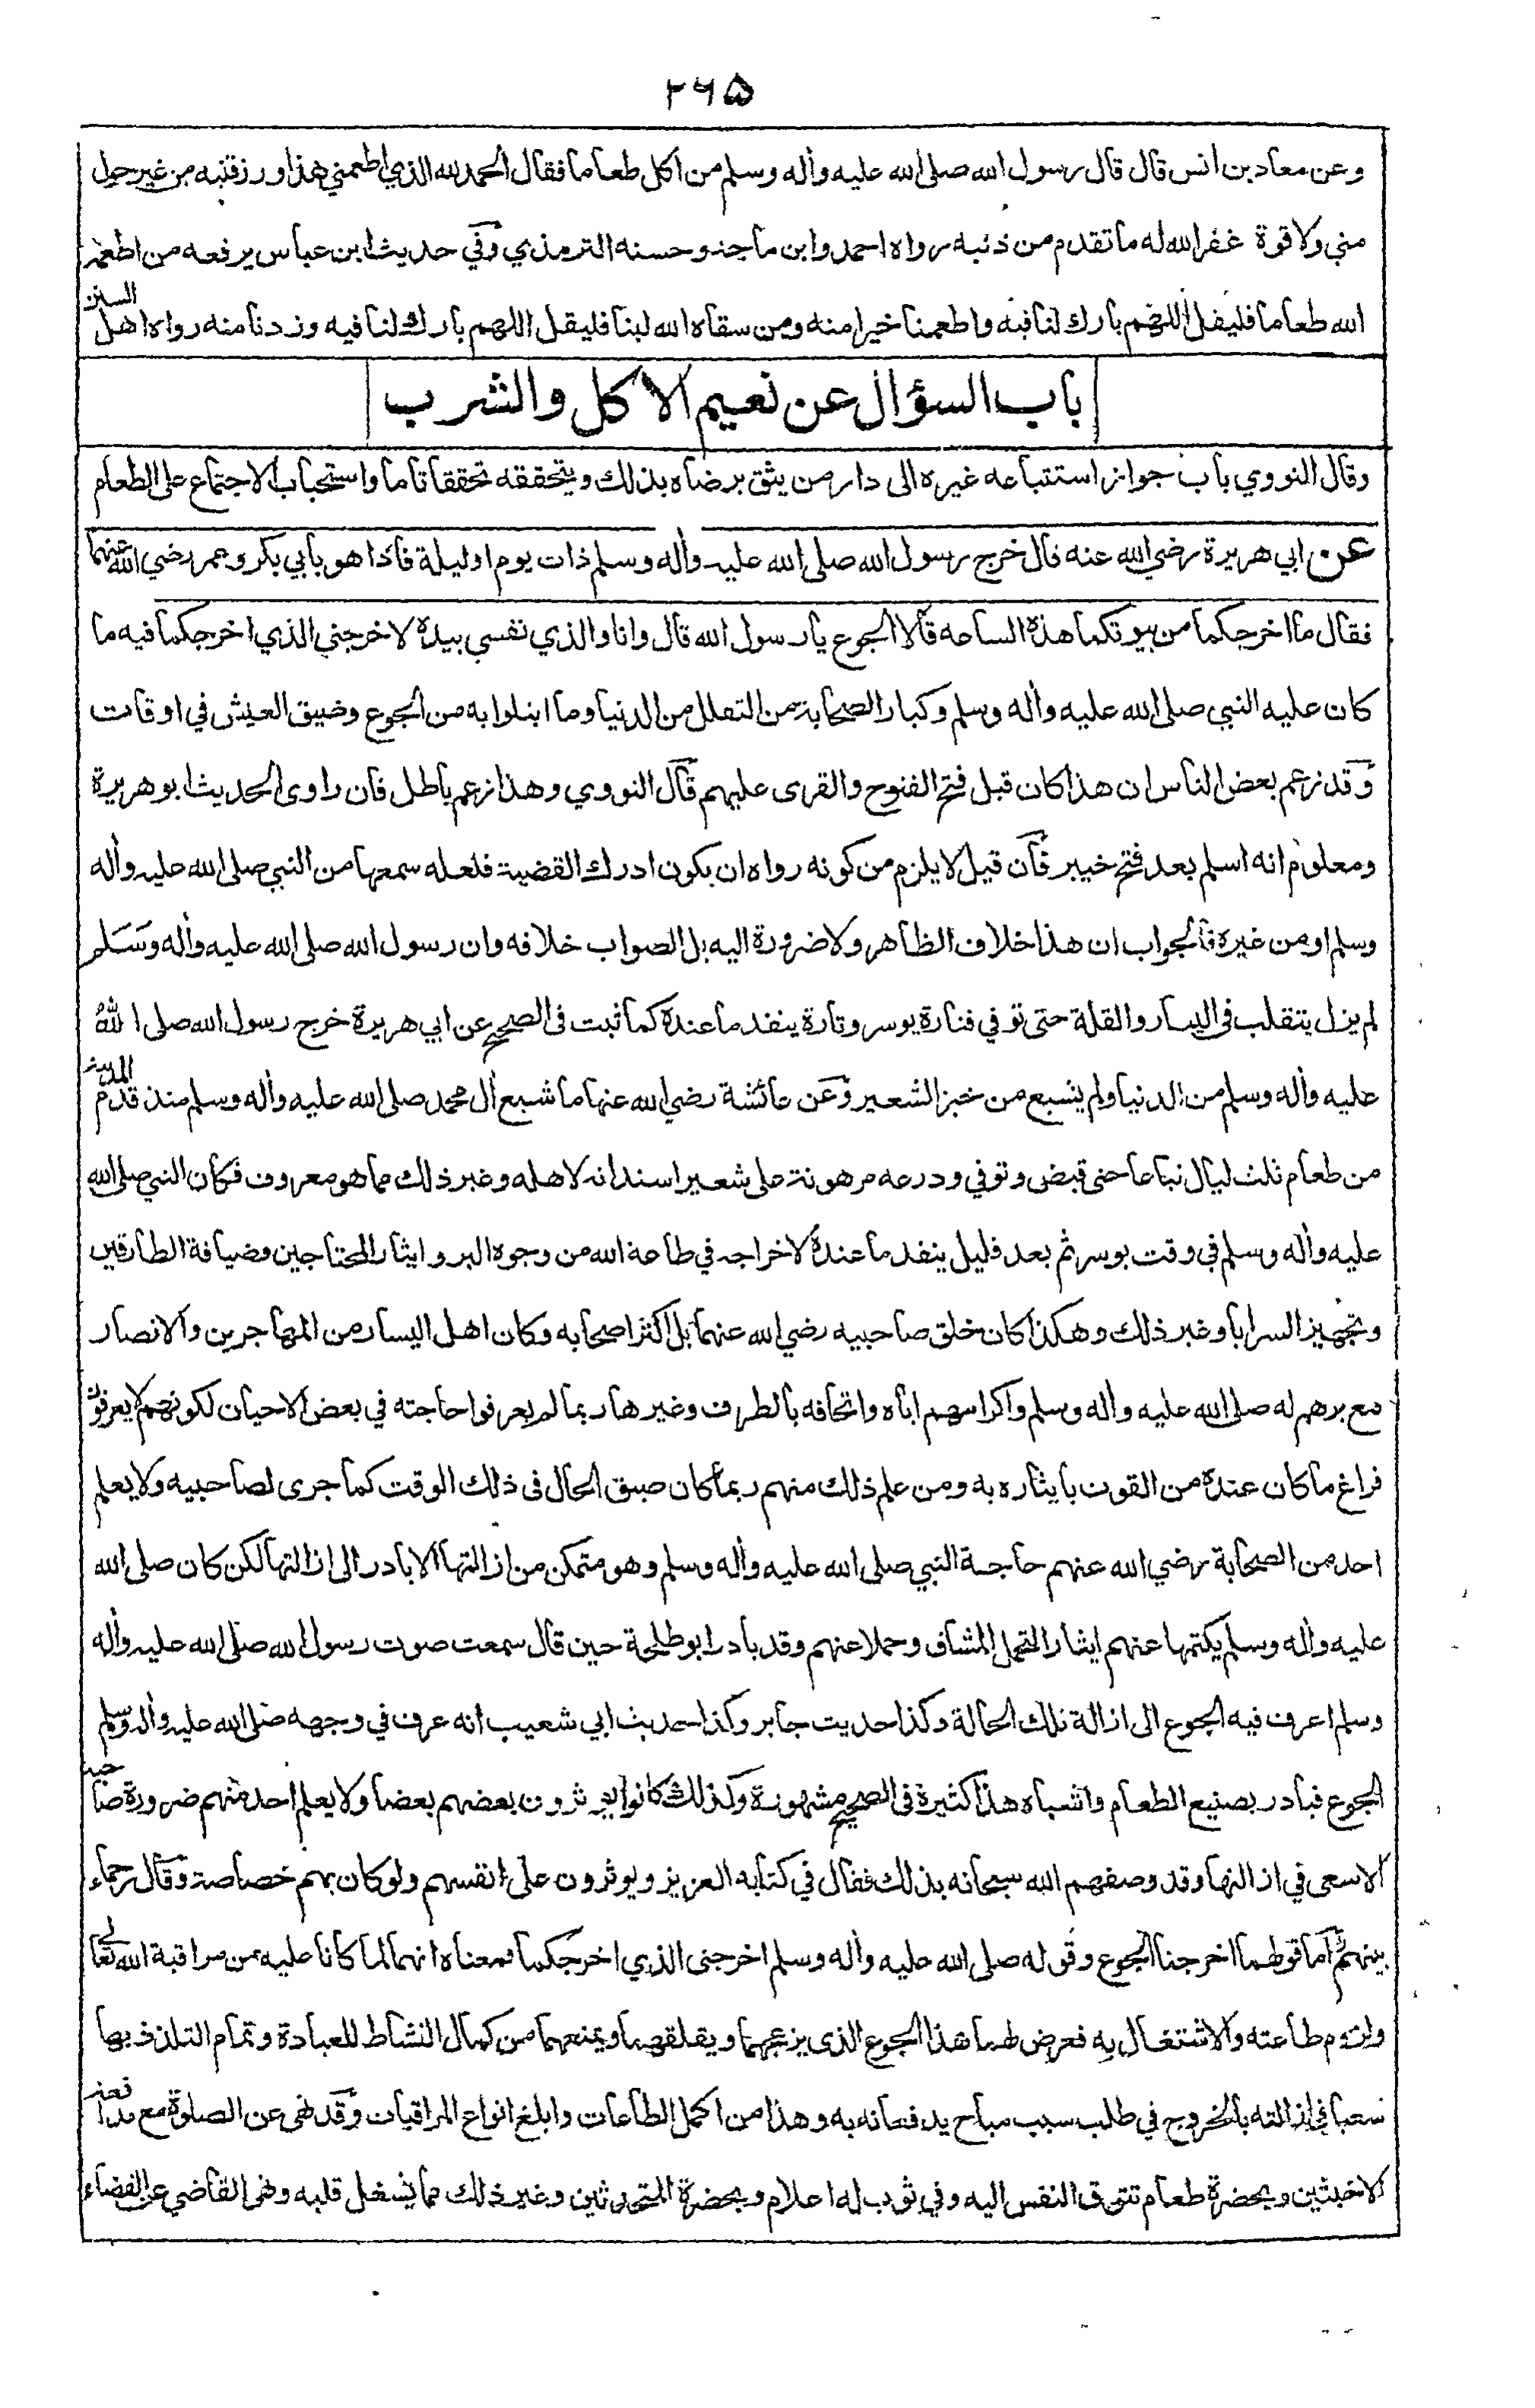 ٢٦٥
وعن معاد بن انس قال قال رسول الله صلى الله عليه وأله وسلم من اكل طعاما فقال الحمد لله الذي اطعمني هذا ورزقنيه من غير حول
مني ولا قوة غفر الله له ما تقدم من ذنبه رواه احمد وابن ماجة وحسنه الترمذي وفي حديث ابن عباس يرفعه من اطعمه
الله طعاما فليقل اللهم بارك لنا فيه واطعمنا خيرا منه ومن سقاه الله لبنا فليقل اللهم بارك لنا فيه وزدنا منه رواه اهل السنن
باب السؤال عن نعيم الاكل والشرب
وقال النووي باب جواز استتباعه غيره الى دار من يثق برضاه بذلك ويتحققه تحققا تاما واستحباب الاجتماع على الطعام
عن ابي هريرة رضي الله عنه قال خرج رسول الله صلى الله عليه وأله وسلم ذات يوم او ليلة فاذا هو بابي بكر وعمر رضي الله عنهما
فقال ما اخرجكما من بيوتكما هذه الساعه قالا الجوع يا رسول الله قال وانا والذي نفسي بيده لاخرجني الذي اخرجكما فيه ما
كان عليه النبي صلى الله عليه وأله وسلم وكبار الصحابة من التقلل من الدنيا وما ابتلوا به من الجوع وضيق العيش في اوقات
وقد زعم بعض الناس ان هذا كان قبل فتح الفتوح والقرى عليهم قال النووي وهذا زعم باطل فان راوى الحديث ابو هريرة
ومعلوم انه اسلم بعد فتح خيبر فان قيل لا يلزم من كونه رواه ان يكون ادرك القضية فلعله سمعها من النبي صلى الله عليه وأله
وسلم او من غيره فالجواب ان هذا خلاف الظاهر ولا ضرورة اليه بل الصواب خلافه وان رسول الله صلى الله عليه وأله وسلم
لم يزل يتقلب في اليسار والقلة حتى توفي فتارة يوسر وتارة ينفد ما عنده كما ثبت في الصحيح عن ابي هريرة خرج رسول الله صلى الله
عليه وأله وسلم من الدنيا ولم يشبع من خبز الشعير وعن عائشة رضي الله عنها ما شبع أل محمد صلى الله عليه وأله وسلم منذ قدم المدينة
من طعام ثلث ليال تباعا حتى قبض وتوفي ودرعه مرهونة على شعير استدانه لاهله وغير ذلك مما هو معروف فكان النبي صلى الله
عليه وأله وسلم في وقت يوسر ثم بعد قليل ينفد ما عنده لاخراجه في طاعة الله من وجوه البر وايثار المحتاجين وضيافة الطارقين
وتجهيز السرايا وغير ذلك وهكذا كان خلق صاحبيه رضي الله عنهما بل اكثر اصحابه وكان اهل اليسار من المهاجرين والانصار
مع برهم له صلى الله عليه وأله وسلم واكرامهم اياه واتحافه بالطرف وغيرها ربما لم يعرفوا حاجته في بعض الاحيان لكونهم لا يعرفون
فراغ ما كان عنده من القوت بايثاره به ومن علم ذلك منهم ربما كان ضيق الحال في ذلك الوقت كما جرى لصاحبيه ولا يعلم
احد من الصحابة رضي الله عنهم حاجة النبي صلى الله عليه وأله وسلم وهو متمكن من ازالتها الا بادر الى ازالتها لكن كان صلى الله
عليه وأله وسلم يكتمها عنهم ايثارا لتحمل المشاق وحملا عنهم وقد بادر ابو طلحة حين قال سمعت صوت رسول الله صلى الله عليه وأله
وسلم اعرف فيه الجوع الى ازالة تلك الحالة وكذا حديث جابر وكذا حديث ابي شعيب انه عرف في وجهه صلى الله عليه وأله وسلم
الجوع فبادر بصنيع الطعام واشباه هذا كثيرة في الصحيح مشهورة وكذلك كانوا يوثرون بعضهم بعضا ولا يعلم احد منهم ضرورة صاحبه
الا سعى في ازالتها وقد وصفهم الله سبحانه بذلك فقال في كتابه العزيز ويوثرون على انفسهم ولو كان بهم خصاصة وقال رحماء
بينهم واما قولهما اخرجنا الجوع وقوله صلى الله عليه وأله وسلم اخرجنى الذي اخرجكما فمعناه انهما لما كانا عليه من مراقبة الله تعالى
ولزوم طاعته والاشتغال به فعرض لهما هذا الجوع الذى يزعجهما ويقلقهما ويمنعهما من كمال النشاط للعبادة وتمام التلذذ بها
سعيا في ازالته بالخروج في طلب سبب مباح يدفعانه به وهذا من اكمل الطاعات وابلغ انواع المراقبات وقد نهى عن الصلوة مع مدافعة
الاخبثين وبحضرة طعام تتوق النفس اليه وفي ثوب له اعلام وبحضرة المتحدثين وغير ذلك مما يشغل قلبه ونهى القاضي عن القضاء